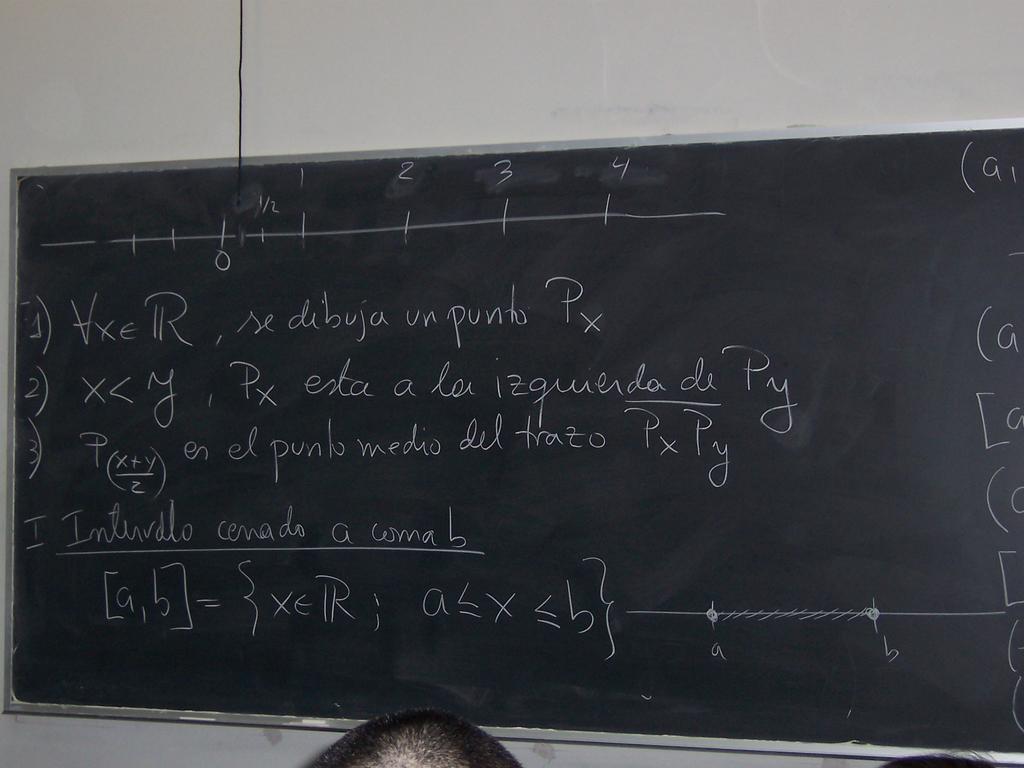 1 2 3 4
1/2
0
1) ∀x∈ℝ, se dibuja un punto Px
2) x<y, Px esta a la izquierda de Py
3) P((x+y)/2) es el punto medio del trazo PxPy
I Intervalo cerrado a coma b
[a,b] = {x∈ℝ; a≤x≤b}
a b
(a,
(a
[a